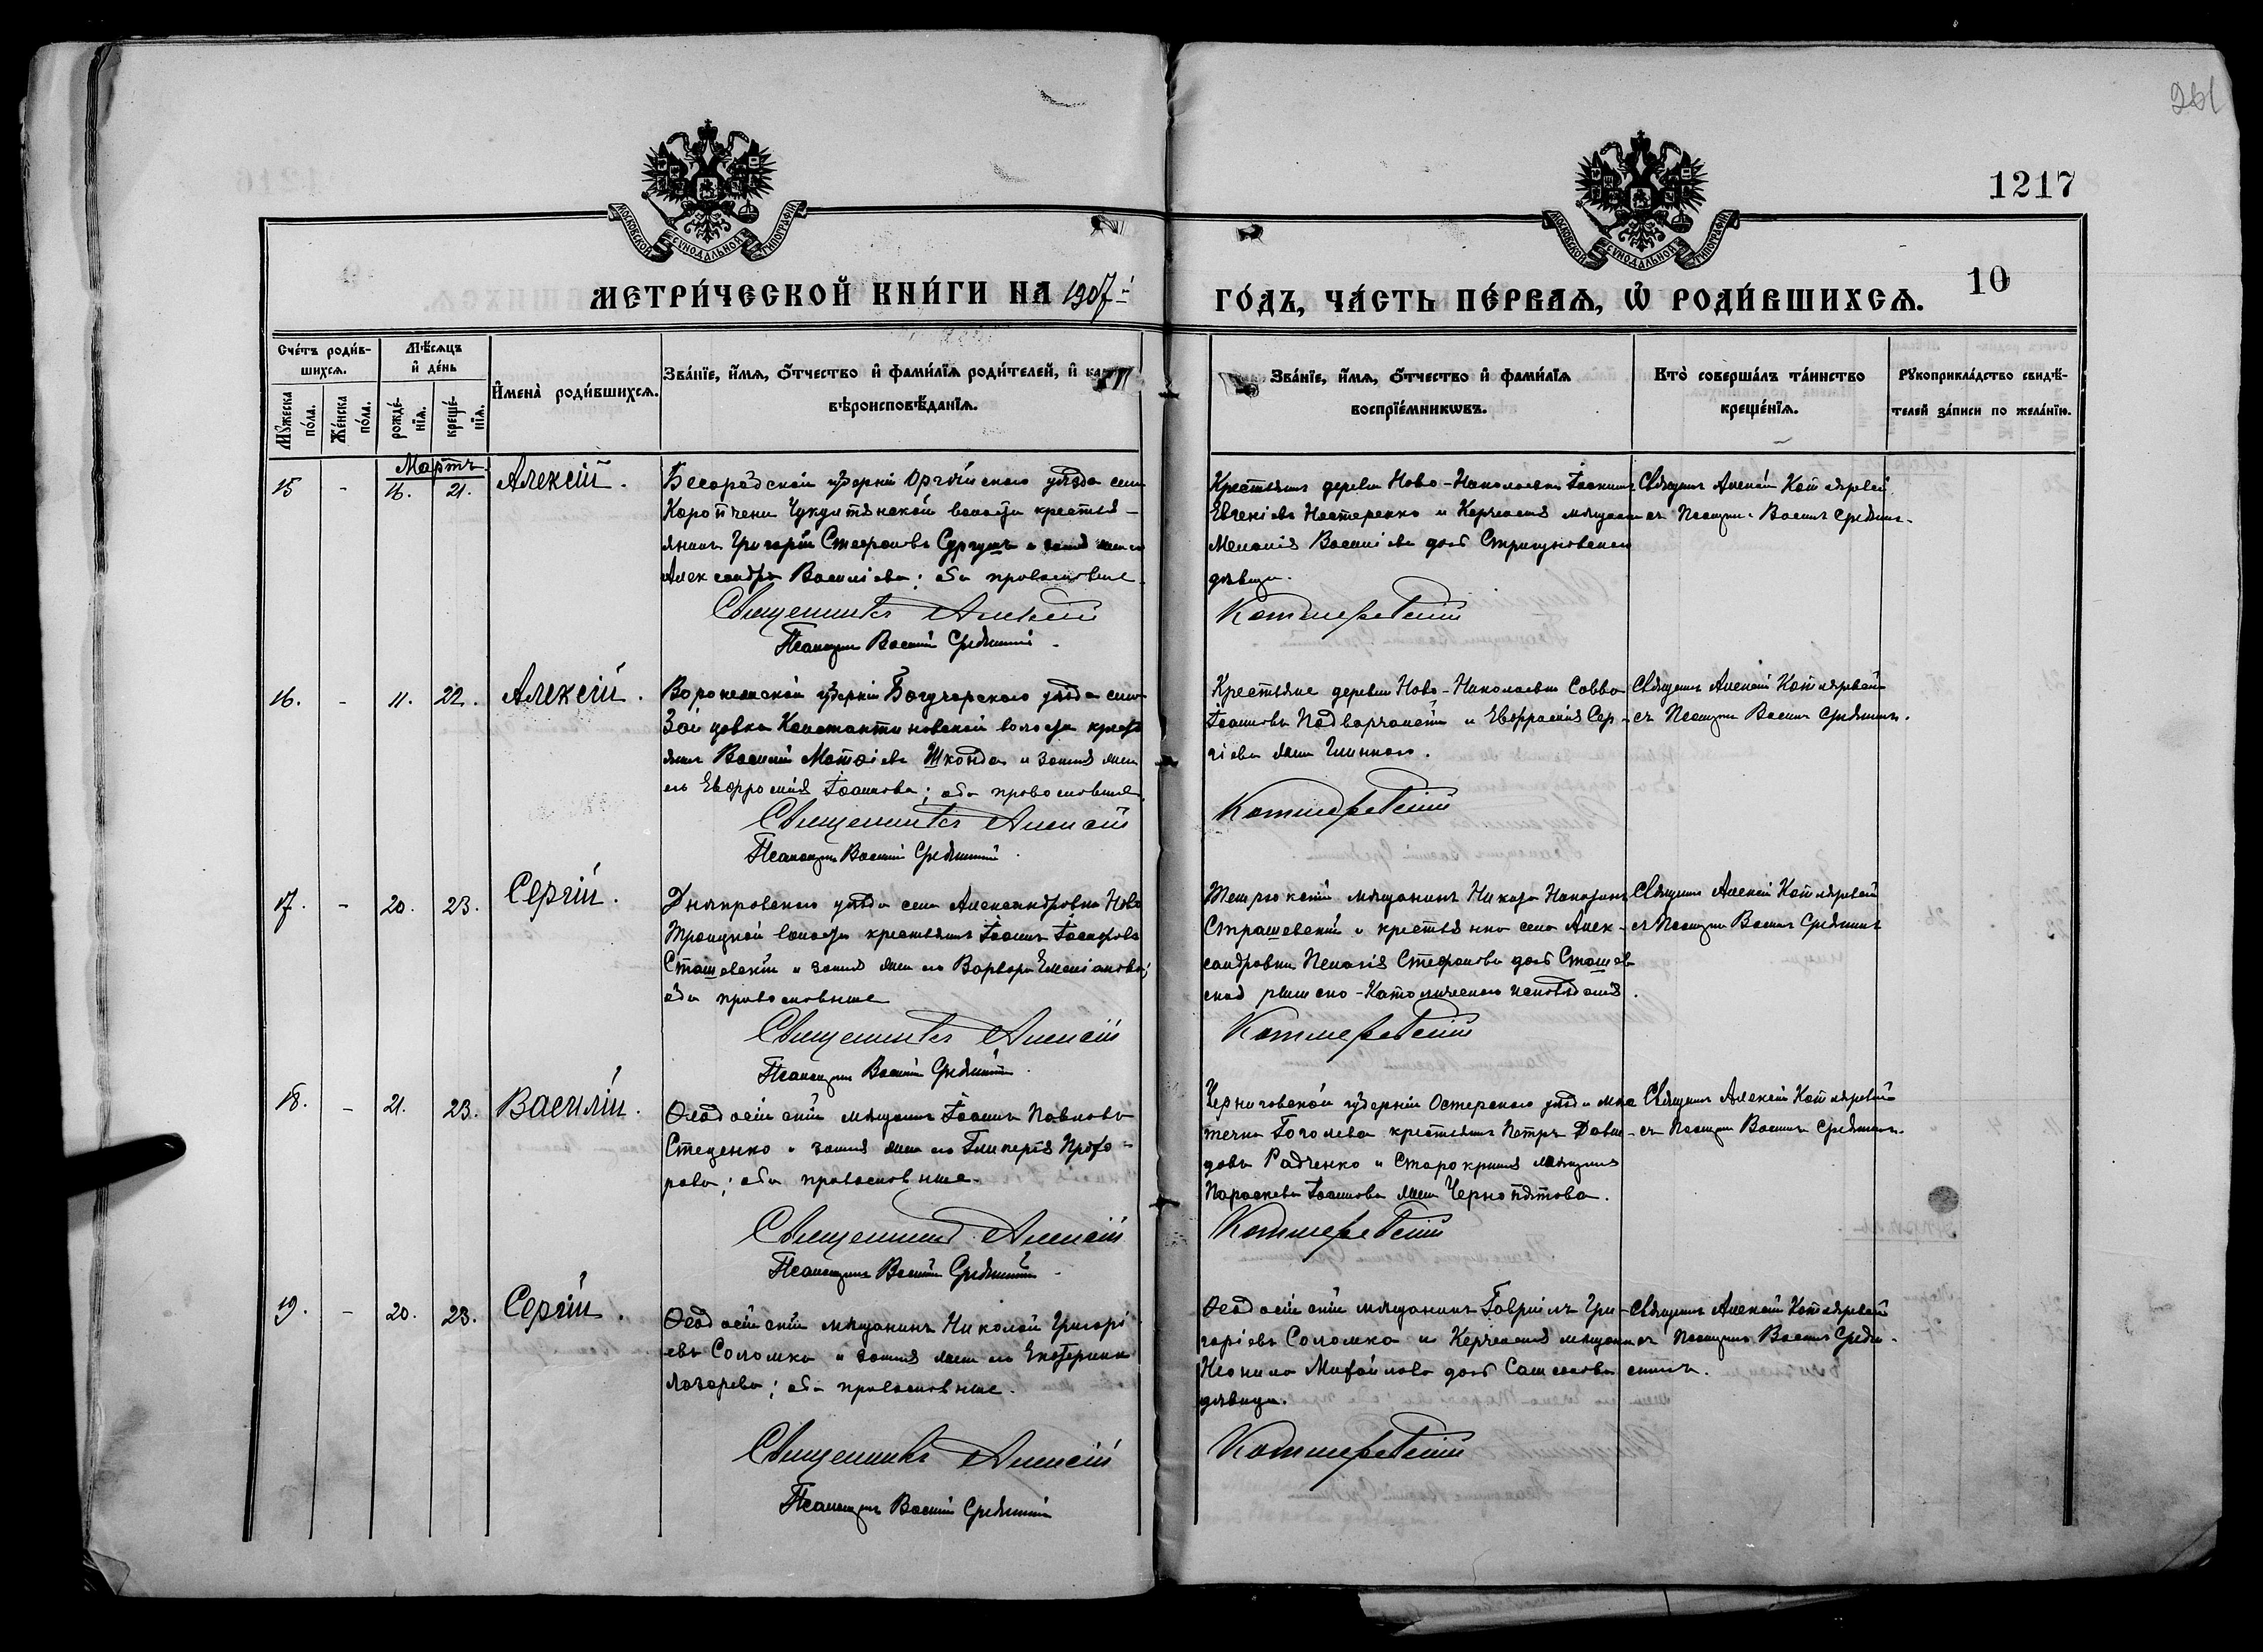 261
1217
МОСКОВСКОЙ СѴНОДАЛЬНОЙ ТИПОГРАФІИ
МОСКОВСКОЙ СѴНОДАЛЬНОЙ ТИПОГРАФІИ
МЕТРИ́ЧЕСКОЙ КНИ́ГИ НА 1907-й
ГО́ДЪ, ЧА́СТЬ ПЕ́РВАѦ, Ѽ РОДИ́ВШИХСѦ.
10
Сче́тъ роди́в-
шихсѧ.
Мꙋ́жеска по́ла.
Же́нска по́ла.
Мѣ́сѧцъ
и҆ де́нь
рожде́-
нїѧ.
креще́-
нїѧ.
И҆мена̀ роди́вшихсѧ.
Зва́нїе, и҆́мѧ, ѻ҆́тчество и҆ фами́лїѧ роди́телей, и҆
вѣроисповѣ́данїѧ.
Зва́нїе, и҆́мѧ, ѻ҆́тчество и҆ фами́лїѧ
воспрїе́мникѡвъ.
Кто̀ соверша́лъ та́инство
креще́нїѧ.
Рꙋкоприкла́дство свидѣ́-
телей за́писи по жела́нїю.
Мартъ.
15 - 16. 21. Алексій.
Бессарабской губерніи Оргѣевскаго уѣзда села
Чукулянской волости крестья-
нинъ Григорій Стефановъ и законная жена его
Александра Василіева; оба православные.
Священникъ Алексій
Псаломщикъ Василій Средин­скій
Крестьянинъ деревни Ново-Николаевки Іоаннъ
Евгеніевъ Нестеренко и Керченская мѣщанка
Меланія Василіева дочь
дѣвица.
Котляревскій
Священникъ Алексій Котляревскій
съ Псаломщ. Василіемъ Средин-
16. - 11. 22. Алексій.
Воронежской губерніи Богучарскаго уѣзда села
Зайцовка Константиновской волости кресть
янинъ Василій Матѳіевъ Шконда и законная жена
его Евфросинія Іоаннова; оба православные.
Священникъ Алексій
Псаломщикъ Василій Срединскій
Крестьяне деревни Ново-Николаевки Савва
Іоанновъ и Евфрасія Сер-
гіева жена Глинкаго.
Котляревскій
Священникъ Алексій Котляревскій
съ Псаломщ. Василіемъ Срединскимъ.
17. - 20. 23. Сергій.
Днѣпровскаго уѣзда села Александровки Ново
Троицкой волости крестьянинъ Іоаннъ Іосифовъ
Сташевскій и законная жена его Варвара Емеліанова;
оба православные
Священникъ Алексій
Псаломщикъ Василій Срединскій
мѣщанинъ
Страшевскій и крестьянка села Алек-
сандровки Пелагія Стефанова дочь Сташев
ская римско-Католическаго исповѣданія.
Котляревскій
Священникъ Алексій Котляревскій
съ Псаломщ. Василіемъ Срединскимъ
18. - 21. 23. Василій.
Ѳеодосійскій мѣщанинъ Іоаннъ Павловъ
Стеценко и законная жена его Гликерія Прохо-
рова; оба православные.
Священникъ Алексій
Псаломщикъ Василій Срединскій
Черниговской губерніи Остерскаго уѣзда мѣс
течка Гоголева крестьянинъ Петръ Давы-
довъ Радченко и Старокрымская мѣщанка
Параскева Іоаннова жена Чернопятова.
Котляревскій
Священникъ Алексій Котляревскій
съ Псаломщ. Василіемъ Срединскимъ.
19. - 20. 23. Сергій.
Ѳеодосійскій мѣщанинъ Николай Григорі
евъ Соломка и законная жена его Екатерина
Лазарева; оба православные.
Священникъ Алексій
Псаломщикъ Василій Срединскій
Ѳеодосійскій мѣщанинъ Гавріилъ Гри-
горіевъ Соломка и Керченская мѣщанка
Неонила Михайлова дочь
дѣвица.
Котляревскій
Священникъ Алексій Котляревскій
съ Псаломщ. Василіемъ Средин-
скимъ.